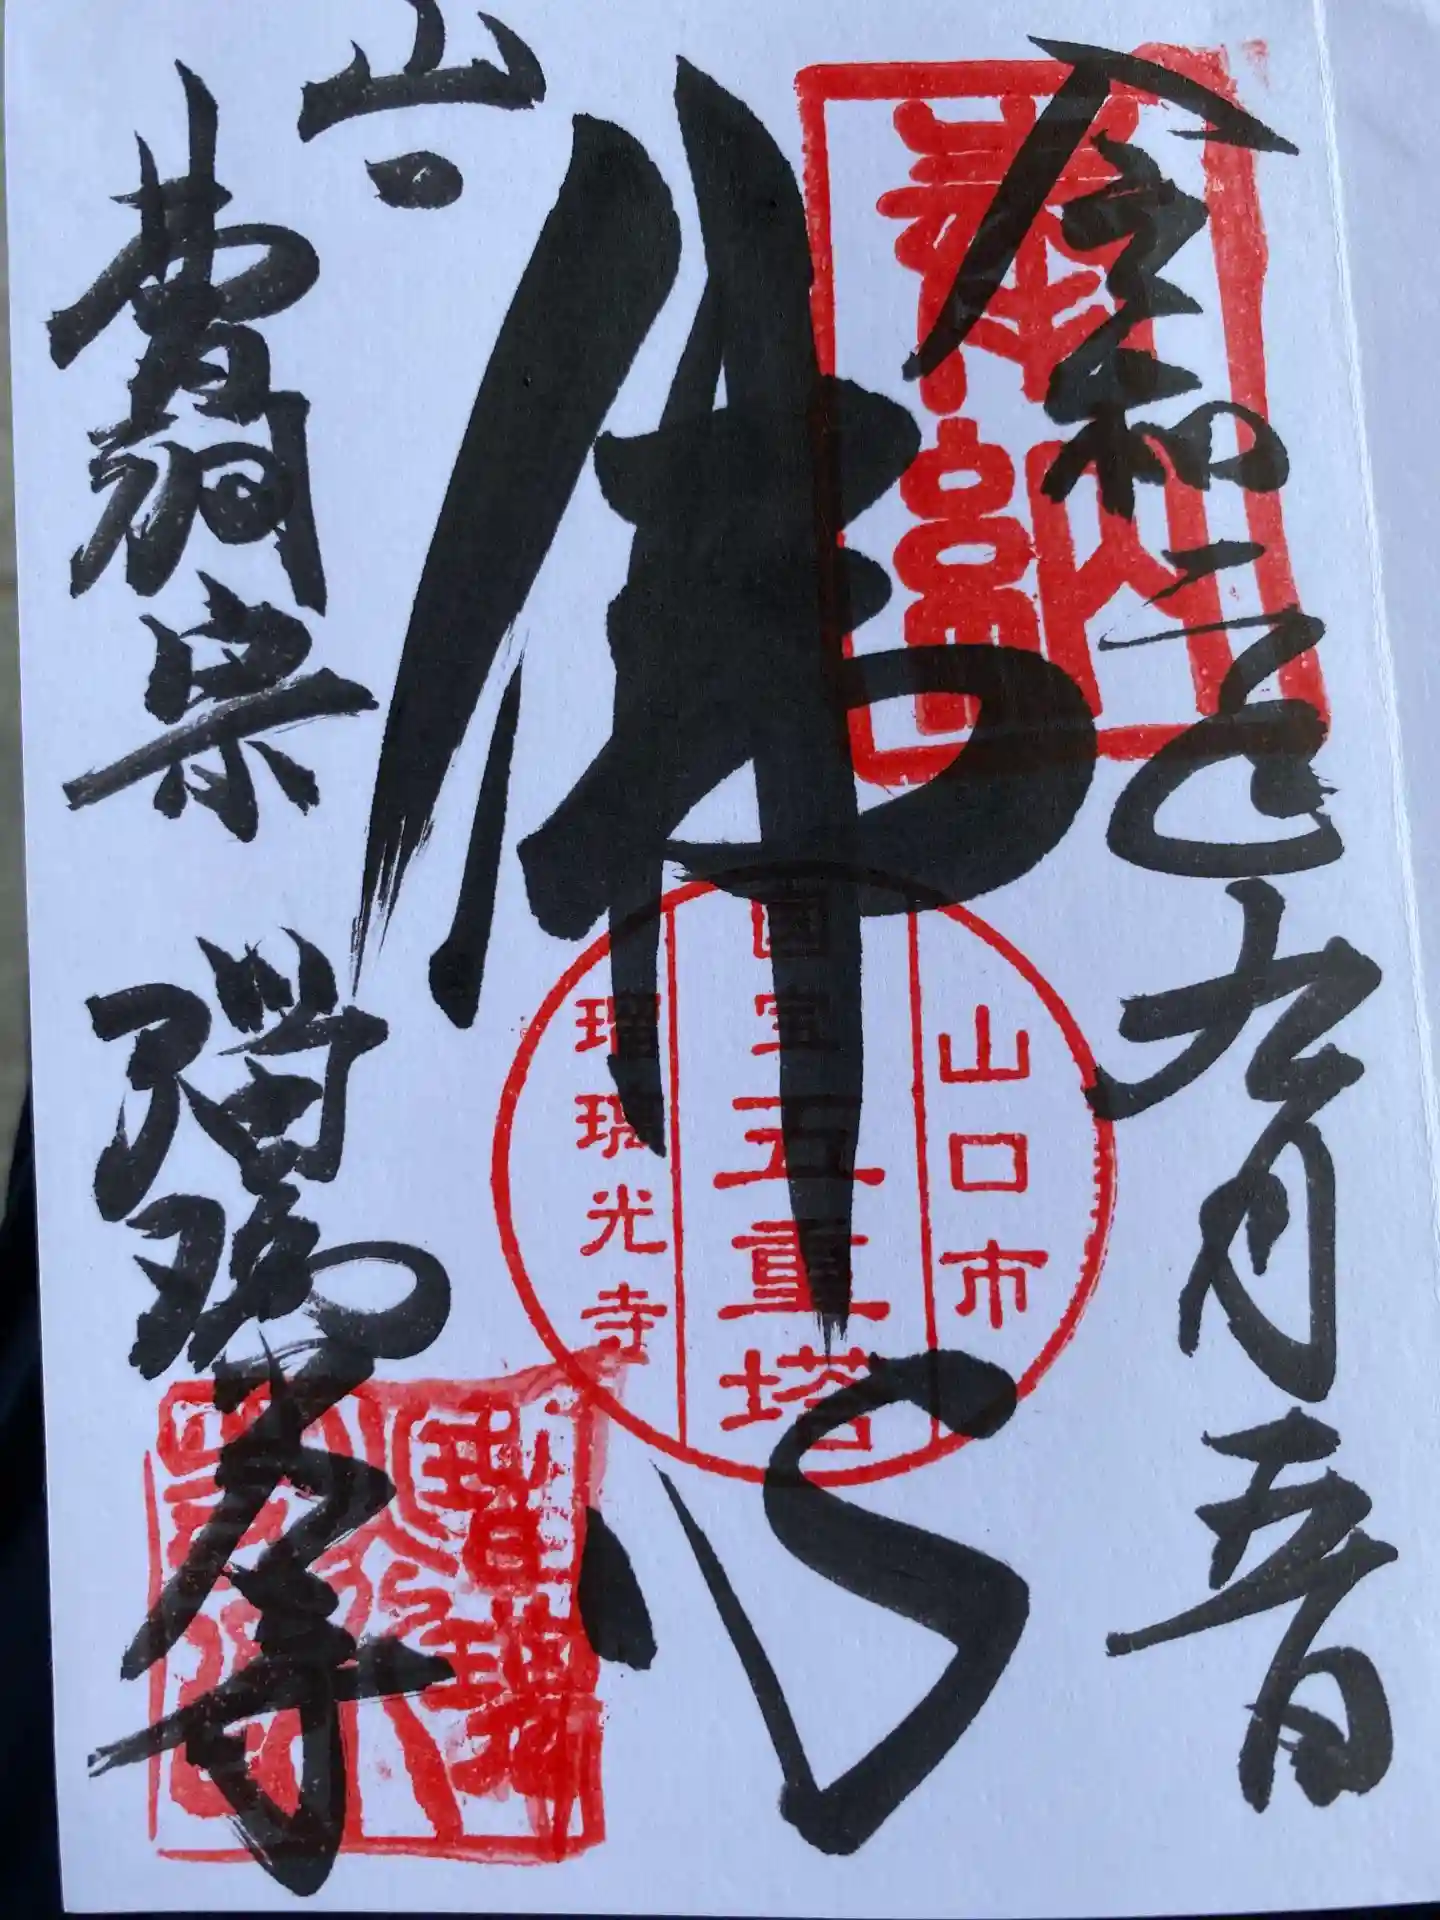 令和二年九月五日
奉納
佛心
山口市
国宝五重塔
瑠璃光寺
山
曹洞宗 瑠璃光寺